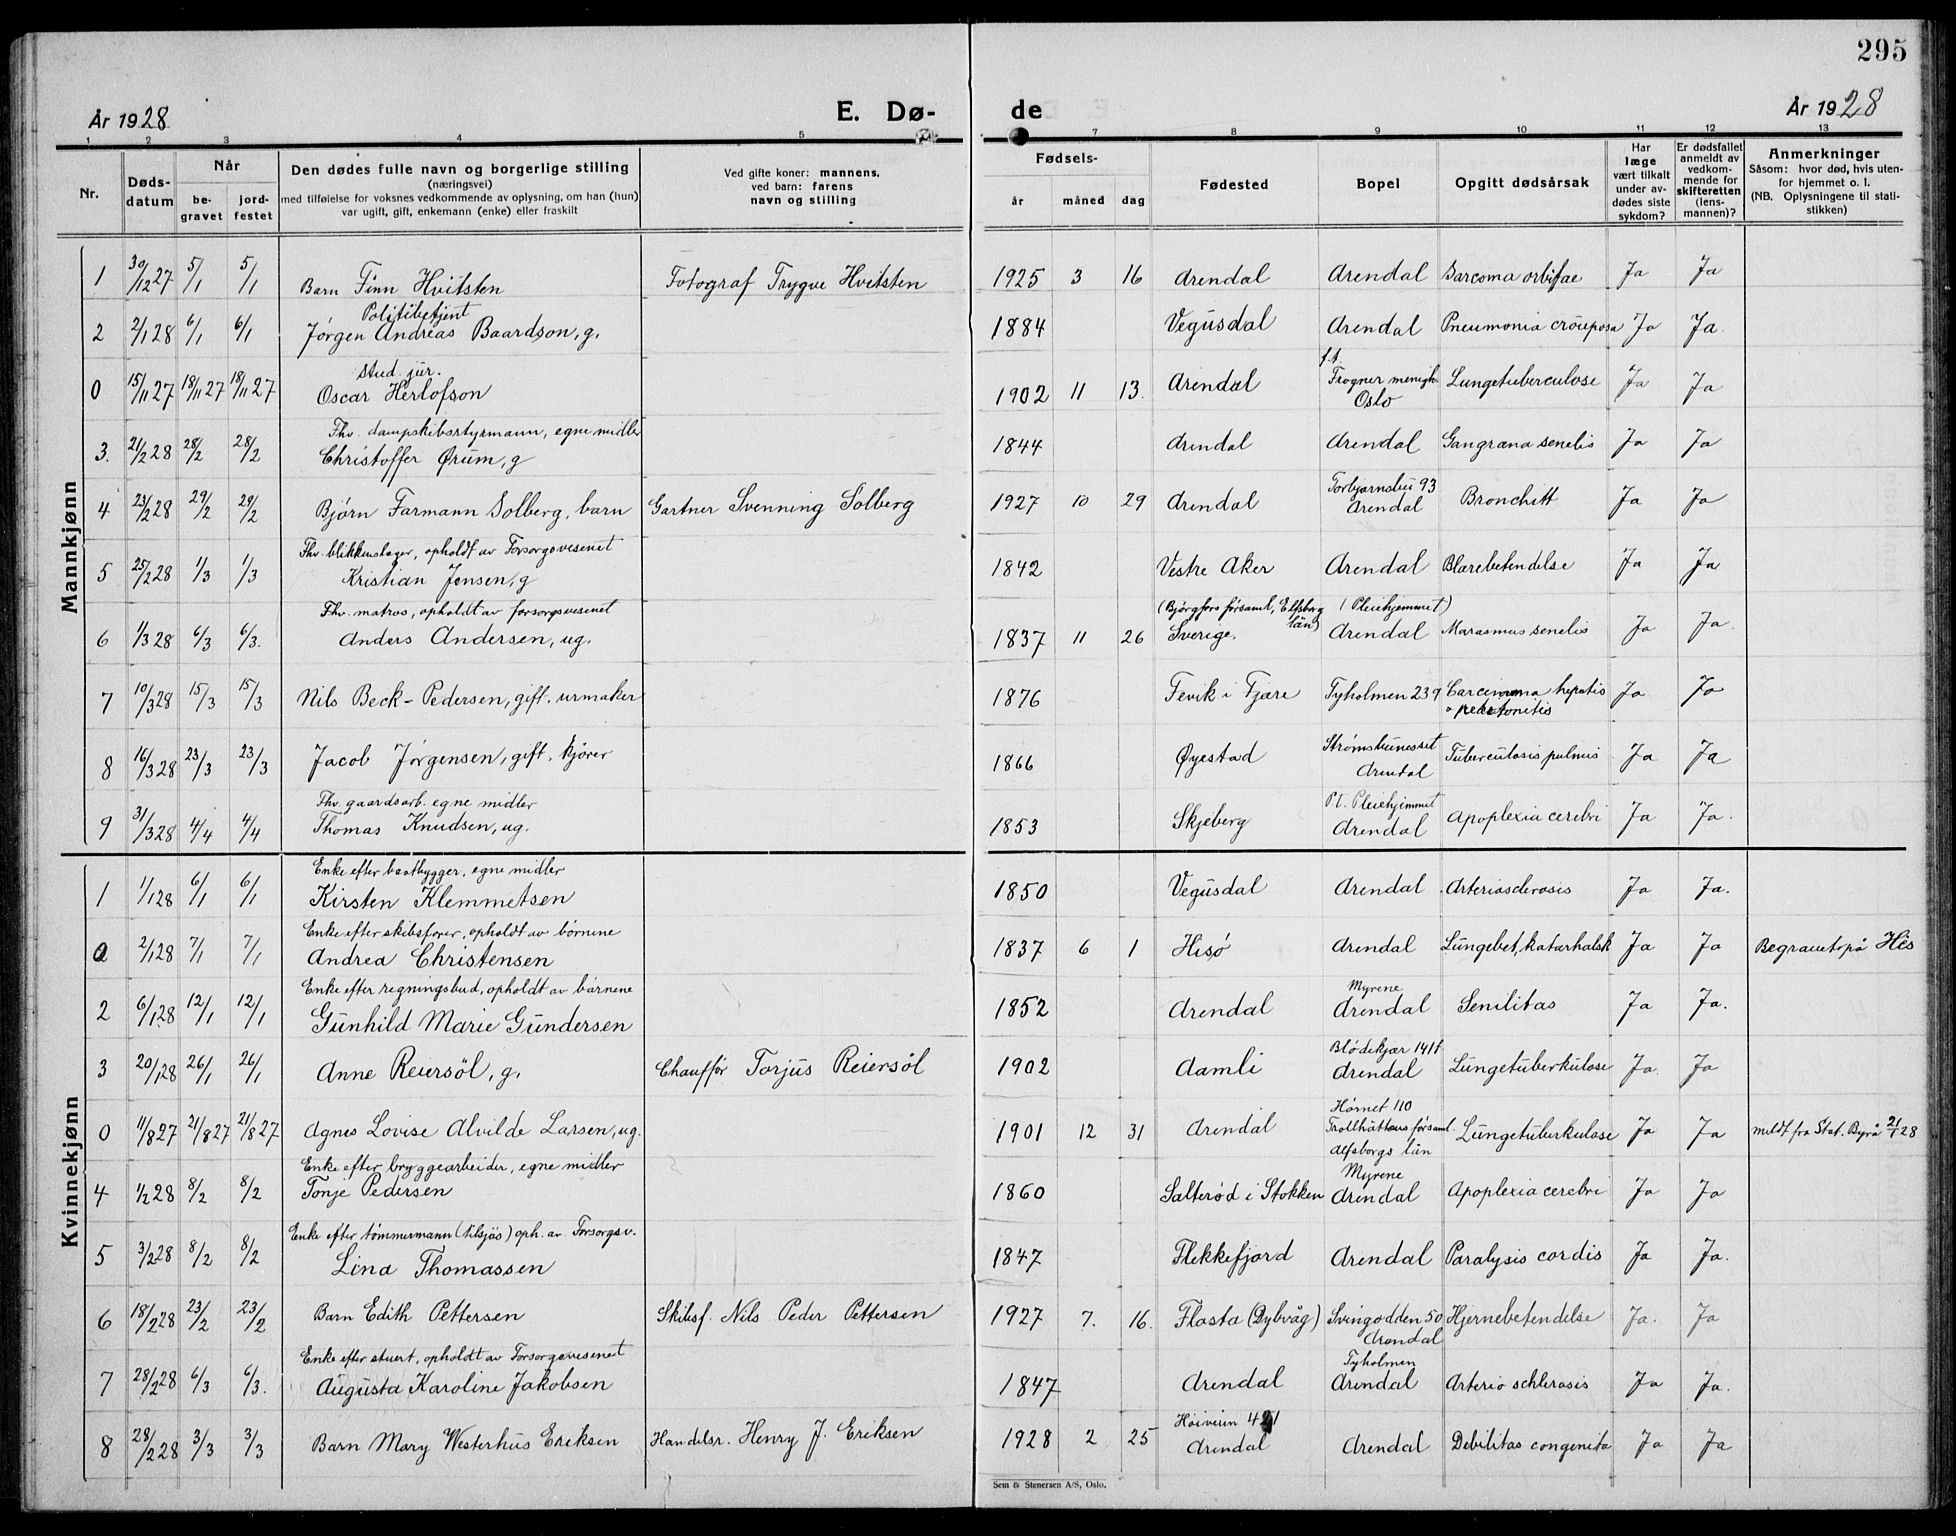 295
År 1928 E. Dø- de År 1928
1 2 3 4 5 7 8 9 10 11 12 13
Nr. Døds-datum Når be-gravet jord-festet Den dødes fulle navn og borgerlige stilling (næringsvei) med tilføielse for voksnes vedkommende av oplysning, om han (hun) var ugift, gift, enkemann (enke) eller fraskilt Ved gifte koner: mannens, ved barn: farens navn og stilling Fødsels- år måned dag Fødested Bopel Opgitt dødsårsak Har læge vært tilkalt under av-dødes siste sykdom? Er dødsfallet anmeldt av vedkom-mende for skifteretten (lens-mannen)? Anmerkninger Såsom: hvor død, hvis uten-for hjemmet o. l. (NB. Oplysningene til stati-stikken)
Mannkjønn
1 30/12 27 5/1 5/1 Barn Finn Hvitsten Fotograf Trygve Hvitsten 1925 3 16 Arendal Arendal Sarcoma orbitae Ja Ja
Politibetjent
2 2/1 28 6/1 6/1 Jørgen Andreas Baardson, g. 1884 Vegusdal Arendal Pneumonia crouposa Ja Ja.
stud. jur. f.t.
0 15/11 27 18/11 27 18/11 27 Oscar Herlofson 1902 11 13. Arendal Frogner menigh. Oslo Lungetuberculose Ja Ja
Fhv. dampskibsstyrmann, egne midler
3. 21/2 28 28/2 28/2 Christoffer Ørum, g 1844 Arendal Arendal Gangræna senelis Ja Ja
4 23/2 28 29/2 29/2 Bjørn Farmann Solberg, barn Gartner Svenning Solberg 1927 10 29 Arendal Torbjørnsbu 93 Arendal Bronchitt Ja Ja
Fhv. blikkenslager, opholdt av Forsorgsvesenet
5 25/2 28 1/3 1/3 Kristian Jensen, g 1842 Vestre Aker Arendal Blærebetendelse Ja Ja
Fhv. matros, opholdt av forsorgsvesenet (Björgfors församl, Elfsborg län) (Pleiehjemmet)
6 1/3 28 6/3 6/3. Anders Andersen, ug. 1837 11 26 Sverige. Arendal Marasmus senelis Ja Ja.
7 10/3 28 15/3 15/3 Nils Beck-Pedersen, gift. urmaker 1876 Fevik i Fjære Tyholmen 239 Carcinoma hepatis o peritonitis Ja Ja
8 16/3 28 23/3 23/3 Jacob Jørgensen, gift. kjører 1866 Øyestad Strømsbunesset Arendal Tuberculosis pulmis Ja Ja
Fhv. gaardsarb. egne midler P.t. Pleiehjemmet
9 31/3 28 4/4 4/4 Thomas Knudsen, ug. 1853 Skjeberg Arendal Apoplexia cerebri Ja Ja.
Kvinnekjønn
Enke efter baatbygger, egne midler
1 1/1 28 6/1 6/1 Kirsten Klemmetsen 1850 Vegusdal Arendal Arteriosclerosis Ja Ja.
Enke efter skibsfører, opholdt av børnene
0 2/1 28 7/1 7/1 Andrea Christensen 1837 6 1 Hisø Arendal Lungebet, katarhalsk Ja Ja Begravet på His
Enke efter regningsbud, opholdt av børnene Myrene
2 6/1 28 12/1 12/1 Gunhild Marie Gundersen 1852 Arendal Arendal Senilitas Ja Ja.
3 20/1 28 26/1 26/1 Anne Reiersöl, g. Chauffør Torjus Reiersöl 1902 Aamli Blødekjær 141 f Arendal Lungetuberkulose Ja. Ja
0 11/8 27 21/8 27 21/8 27 Agnes Lovise Alvilde Larsen, ug. 1901 12 31 Arendal Hörnet 110 Trollhättans församl. Alfsborgs län Lungetuberkulose Ja Ja meldt fra Stat. Byrå 21/1 28
Enke efter bryggearbeider, egne midler Myrene
4 1/2 28 8/2 8/2 Tonje Pedersen 1860 Salterød i Stokken Arendal Apoplexia cerebri Ja Ja
Enke efter tømmermann (tilsjøs) oph. av Forsorgsv.
5 3/2 28 8/2 8/2 Lina Thomassen 1847 Flekkefjord Arendal Paralysis cordis Ja Ja.
6 18/2 28 23/2 23/2 Barn Edith Pettersen Skibsf. Nils Peder Pettersen 1927 7. 16. Flosta (Dybvåg) Svingodden 50 Arendal Hjernebetendelse Ja. Ja
Enke efter stuert, opholdt av Forsorgsvesenet Tyholmen
7 28/2 28 6/3 6/3. Augusta Karoline Jakobsen 1847 Arendal Arendal Arterio schlerosis Ja Ja.
8 28/2 28 3/3 3/3 Barn Mary Westerhus Eriksen Handelsr. Henry J. Eriksen 1928 2 25 Høiveien 421 Arendal Arendal Debilitas congenita Ja Ja
Sem & Stenersen A/S, Oslo.